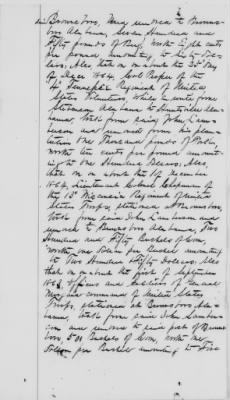 in Brownsboro, and removed to Browns-
boro Alabama, Seven Hundred and
Fifty pounds of Beef, worth eight cents
per pound, amounting to Sixty Dol-
lars; Also, that on or about the day
of 1864, Troops of the
4th Tennessee Regiment of United
States Volunteers, while en route from
Stevenson Alabama to Huntsville Ala-
bama took from said John
and removed from his plan-
tation One Thousand pounds of Pork,
worth ten cents per pound amount-
ing to One Hundred Dollars; Also,
that on or about the 1st December
1864, Lieutenant Colonel
of the 13th Regiment of United
States Troops, stationed at Brownsboro,
took from said John and
removed to Brownsboro Alabama, Two
Hundred and Fifty Bushels of Corn,
worth one Dollar per Bushel amounting
to Two Hundred & Fifty Dollars. Also
that on or about the first of September
1863, Officers and Soldiers of General
command of United States
Troops, stationed at Brownsboro Ala-
bama, took from said John
and removed to said post of Browns-
boro 500 Bushels of Corn, worth one
Dollar per Bushel amounting to Five